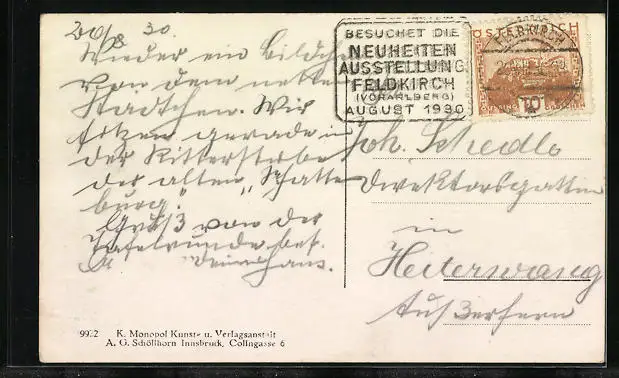 26/8 30.
Wieder ein Bildchen
von dem netten
Städtchen. Wir
sitzen gerade in
der Ritterstube
der alten "Schatten
burg".
Gruß von der
Tafelrunde bes.
Hans.
BESUCHET DIE
NEUHEITEN
AUSSTELLUNG
FELDKIRCH
(VORARLBERG)
AUGUST 1930
ÖSTERREICH
FELDKIRCH
10
Joh. Schedle
Direktorsgattin
in
Heiterwang
Außerfern
K. Monopol Kunst- u. Verlagsanstalt
A. G. Schöllhorn Innsbruck, Colingasse 6